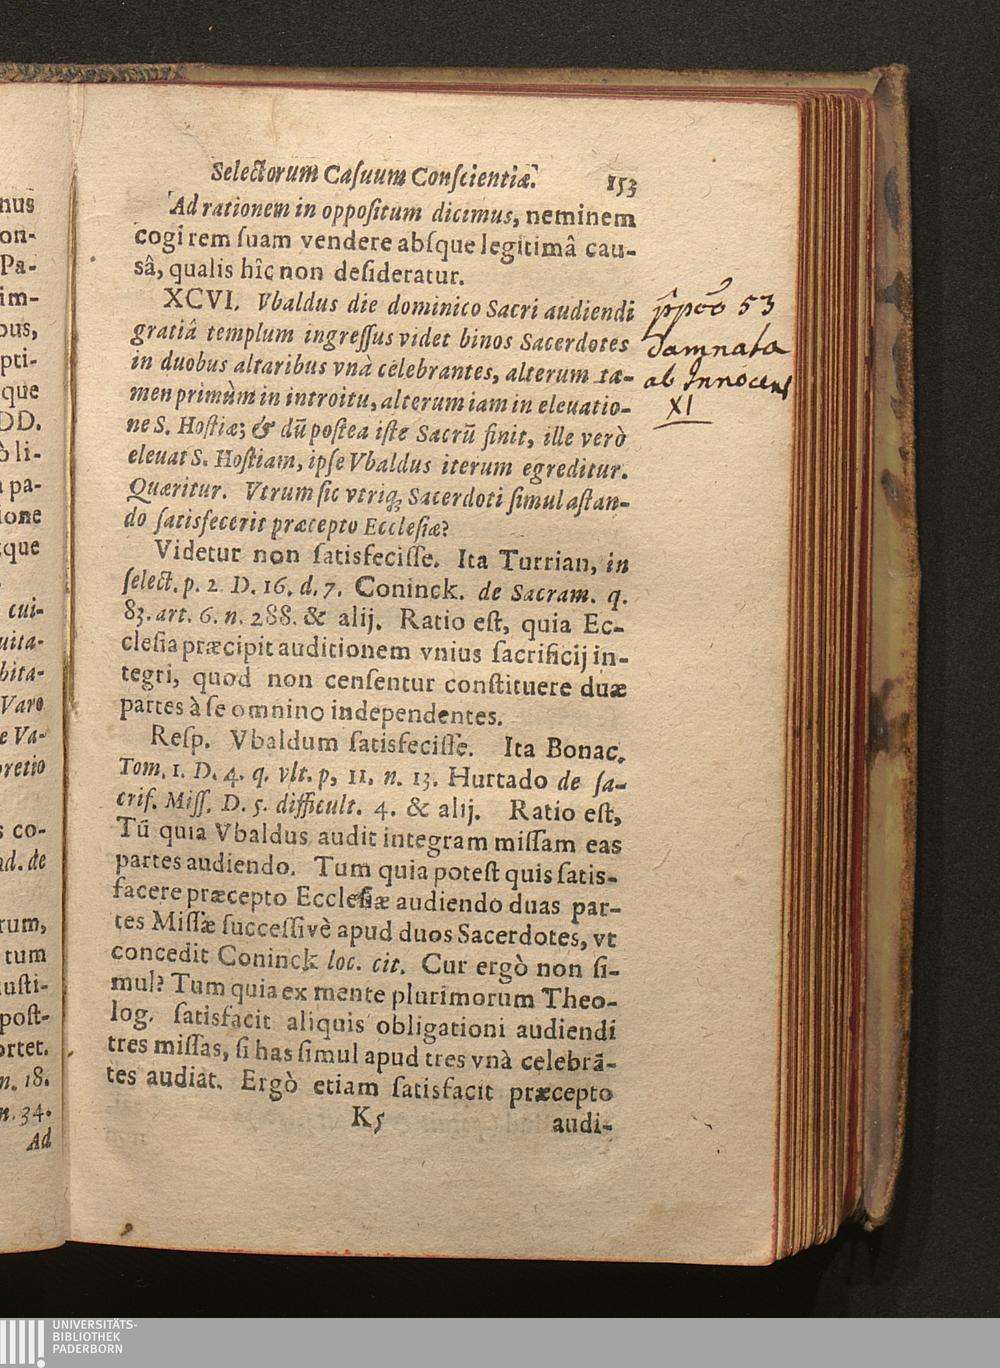 nus
on-
Pa-
im-
ous,
pti-
que
DD.
ò li-
pa-
ione
que
cui-
uita-
bita-
Varo
e Va-
pretio
s co-
ad. de
rum,
tum
iusti-
post-
ortet.
n. 18.
n. 34.
Ad
Selectorum Caſuum Conſcientiæ. 153
Ad rationem in oppoſitum dicimus, neminem
cogi rem ſuam vendere abſque legitimâ cau-
sâ, qualis hîc non deſideratur.
XCVI. Vbaldus die dominico Sacri audiendi
gratiâ templum ingreſſus videt binos Sacerdotes
in duobus altaribus vnà celebrantes, alterum ta-
men primùm in introitu, alterum iam in eleuatio-
ne S. Hoſtiæ; & dū poſtea iſte Sacrū finit, ille verò
eleuat S. Hoſtiam, ipſe Vbaldus iterum egreditur.
Quæritur. Vtrum ſic vtriq; Sacerdoti ſimul aſtan-
do ſatisfecerit præcepto Eccleſiæ?
Videtur non ſatisfeciſſe. Ita Turrian, in
ſelect. p. 2 D. 16. d. 7. Coninck. de Sacram. q.
83. art. 6. n. 288. & alij. Ratio eſt, quia Ec-
cleſia præcipit auditionem vnius ſacrificij in-
tegri, quod non cenſentur conſtituere duæ
partes à ſe omnino independentes.
Reſp. Vbaldum ſatisfeciſſe. Ita Bonac.
Tom. 1. D. 4. q. vlt. p, 11. n. 13. Hurtado de ſa-
crif. Miſſ. D. 5. difficult. 4. & alij. Ratio eſt,
Tū quia Vbaldus audit integram miſſam eas
partes audiendo. Tum quia poteſt quis ſatis-
facere præcepto Eccleſiæ audiendo duas par-
tes Miſſæ ſucceſſivè apud duos Sacerdotes, vt
concedit Coninck loc. cit. Cur ergò non ſi-
mul? Tum quia ex mente plurimorum Theo-
log. ſatisfacit aliquis obligationi audiendi
tres miſſas, ſi has ſimul apud tres vnà celebrā-
tes audiat. Ergò etiam ſatisfacit præcepto
K5 audi-
53
damnata
ab Innocent
XI
UNIVERSITÄTS-
BIBLIOTHEK
PADERBORN